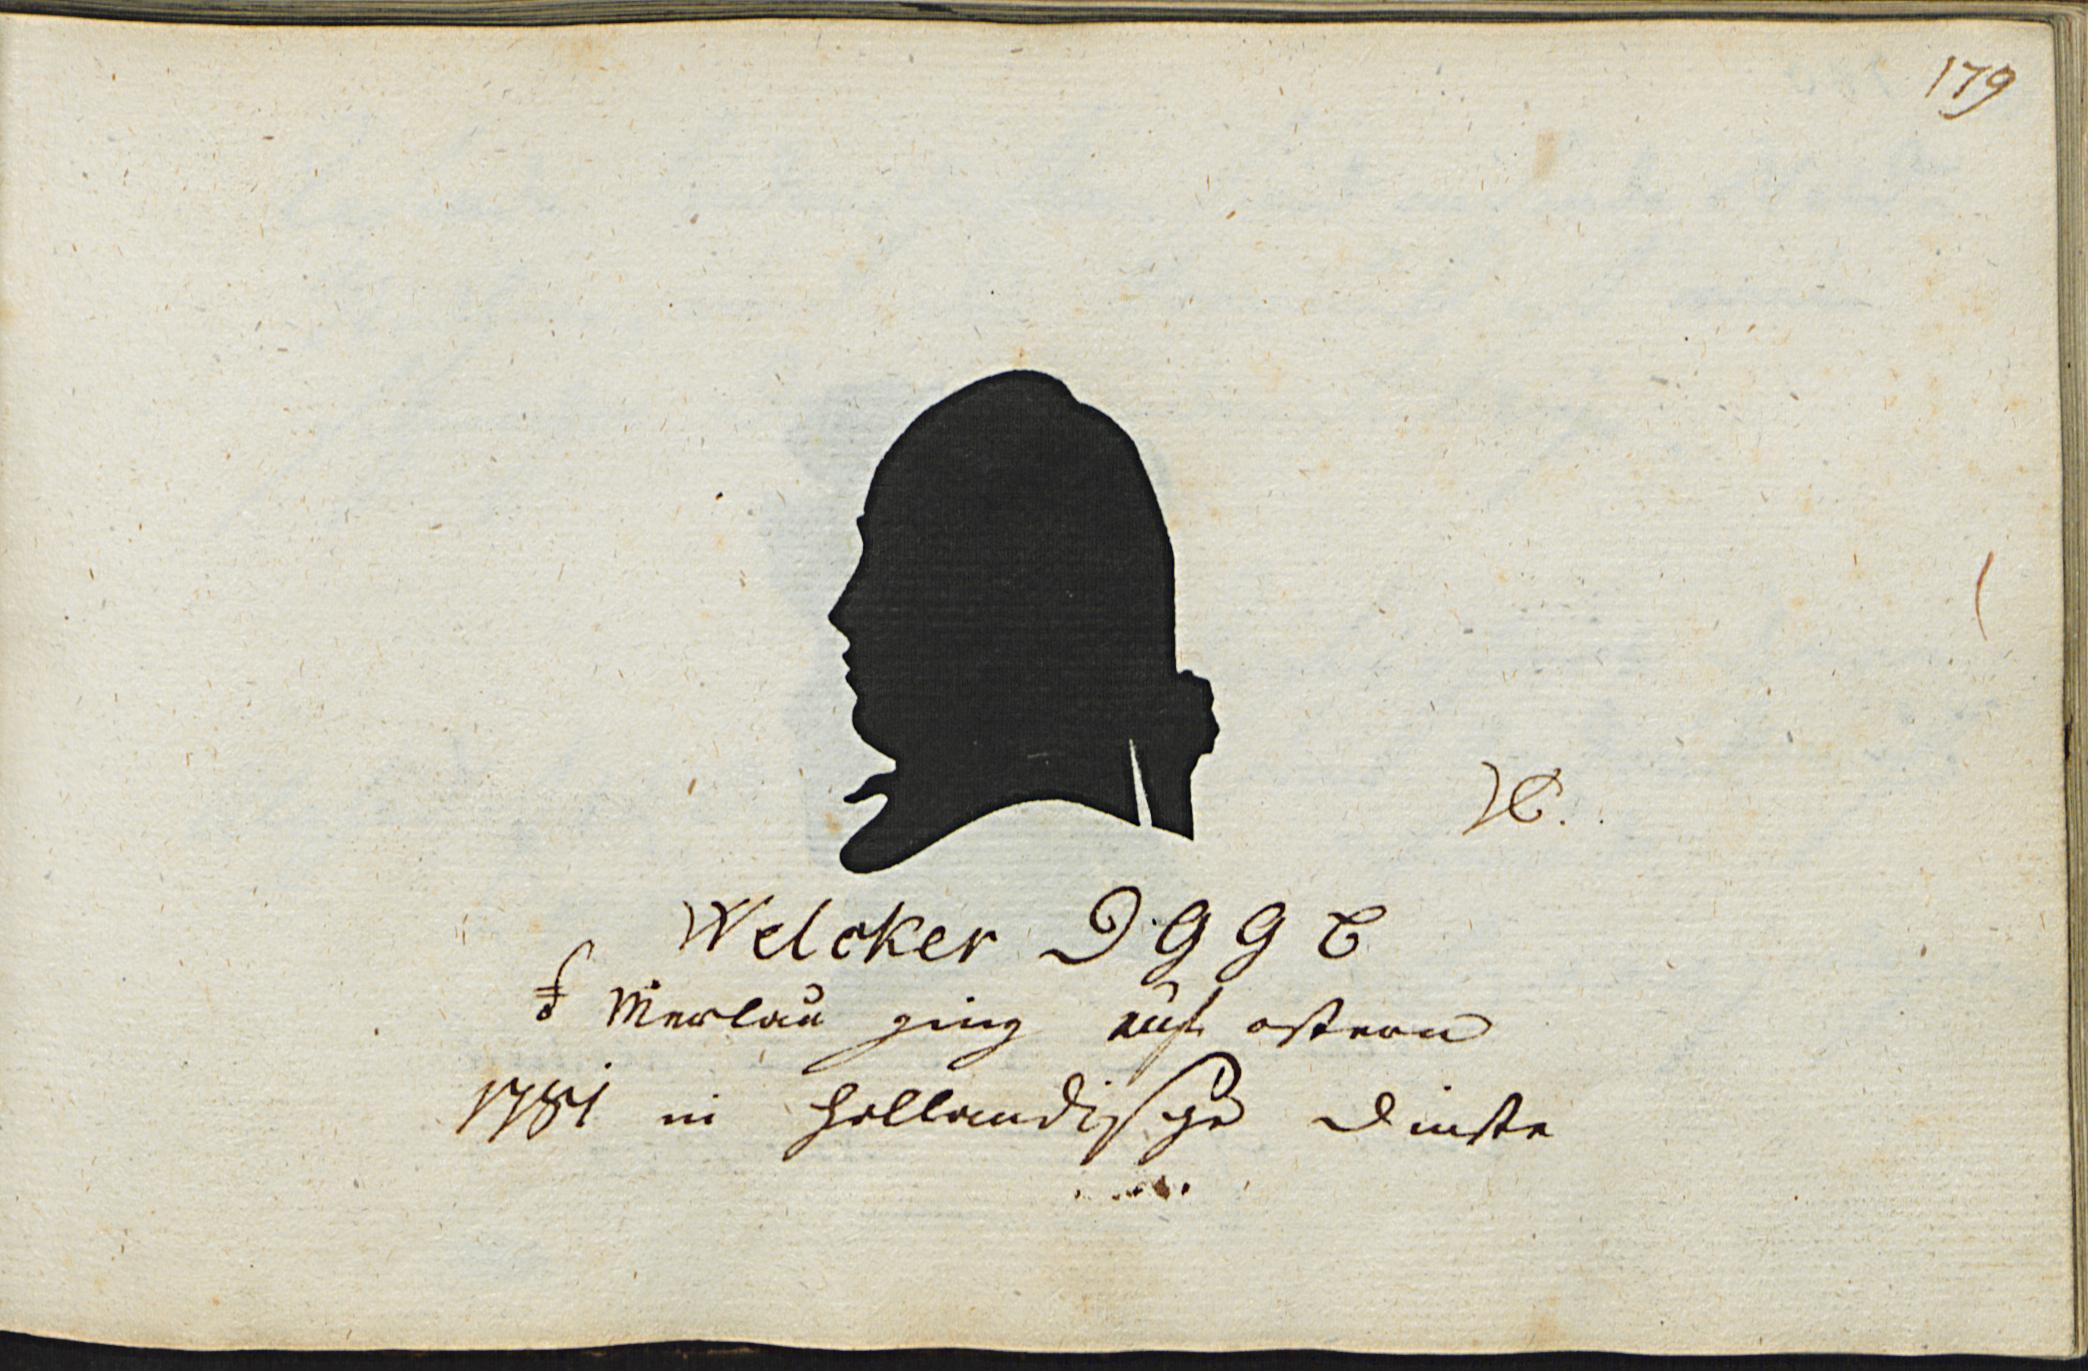 179
Welcker D. G G C
Merlau ging auf ostern
1781 in holländische Dinste